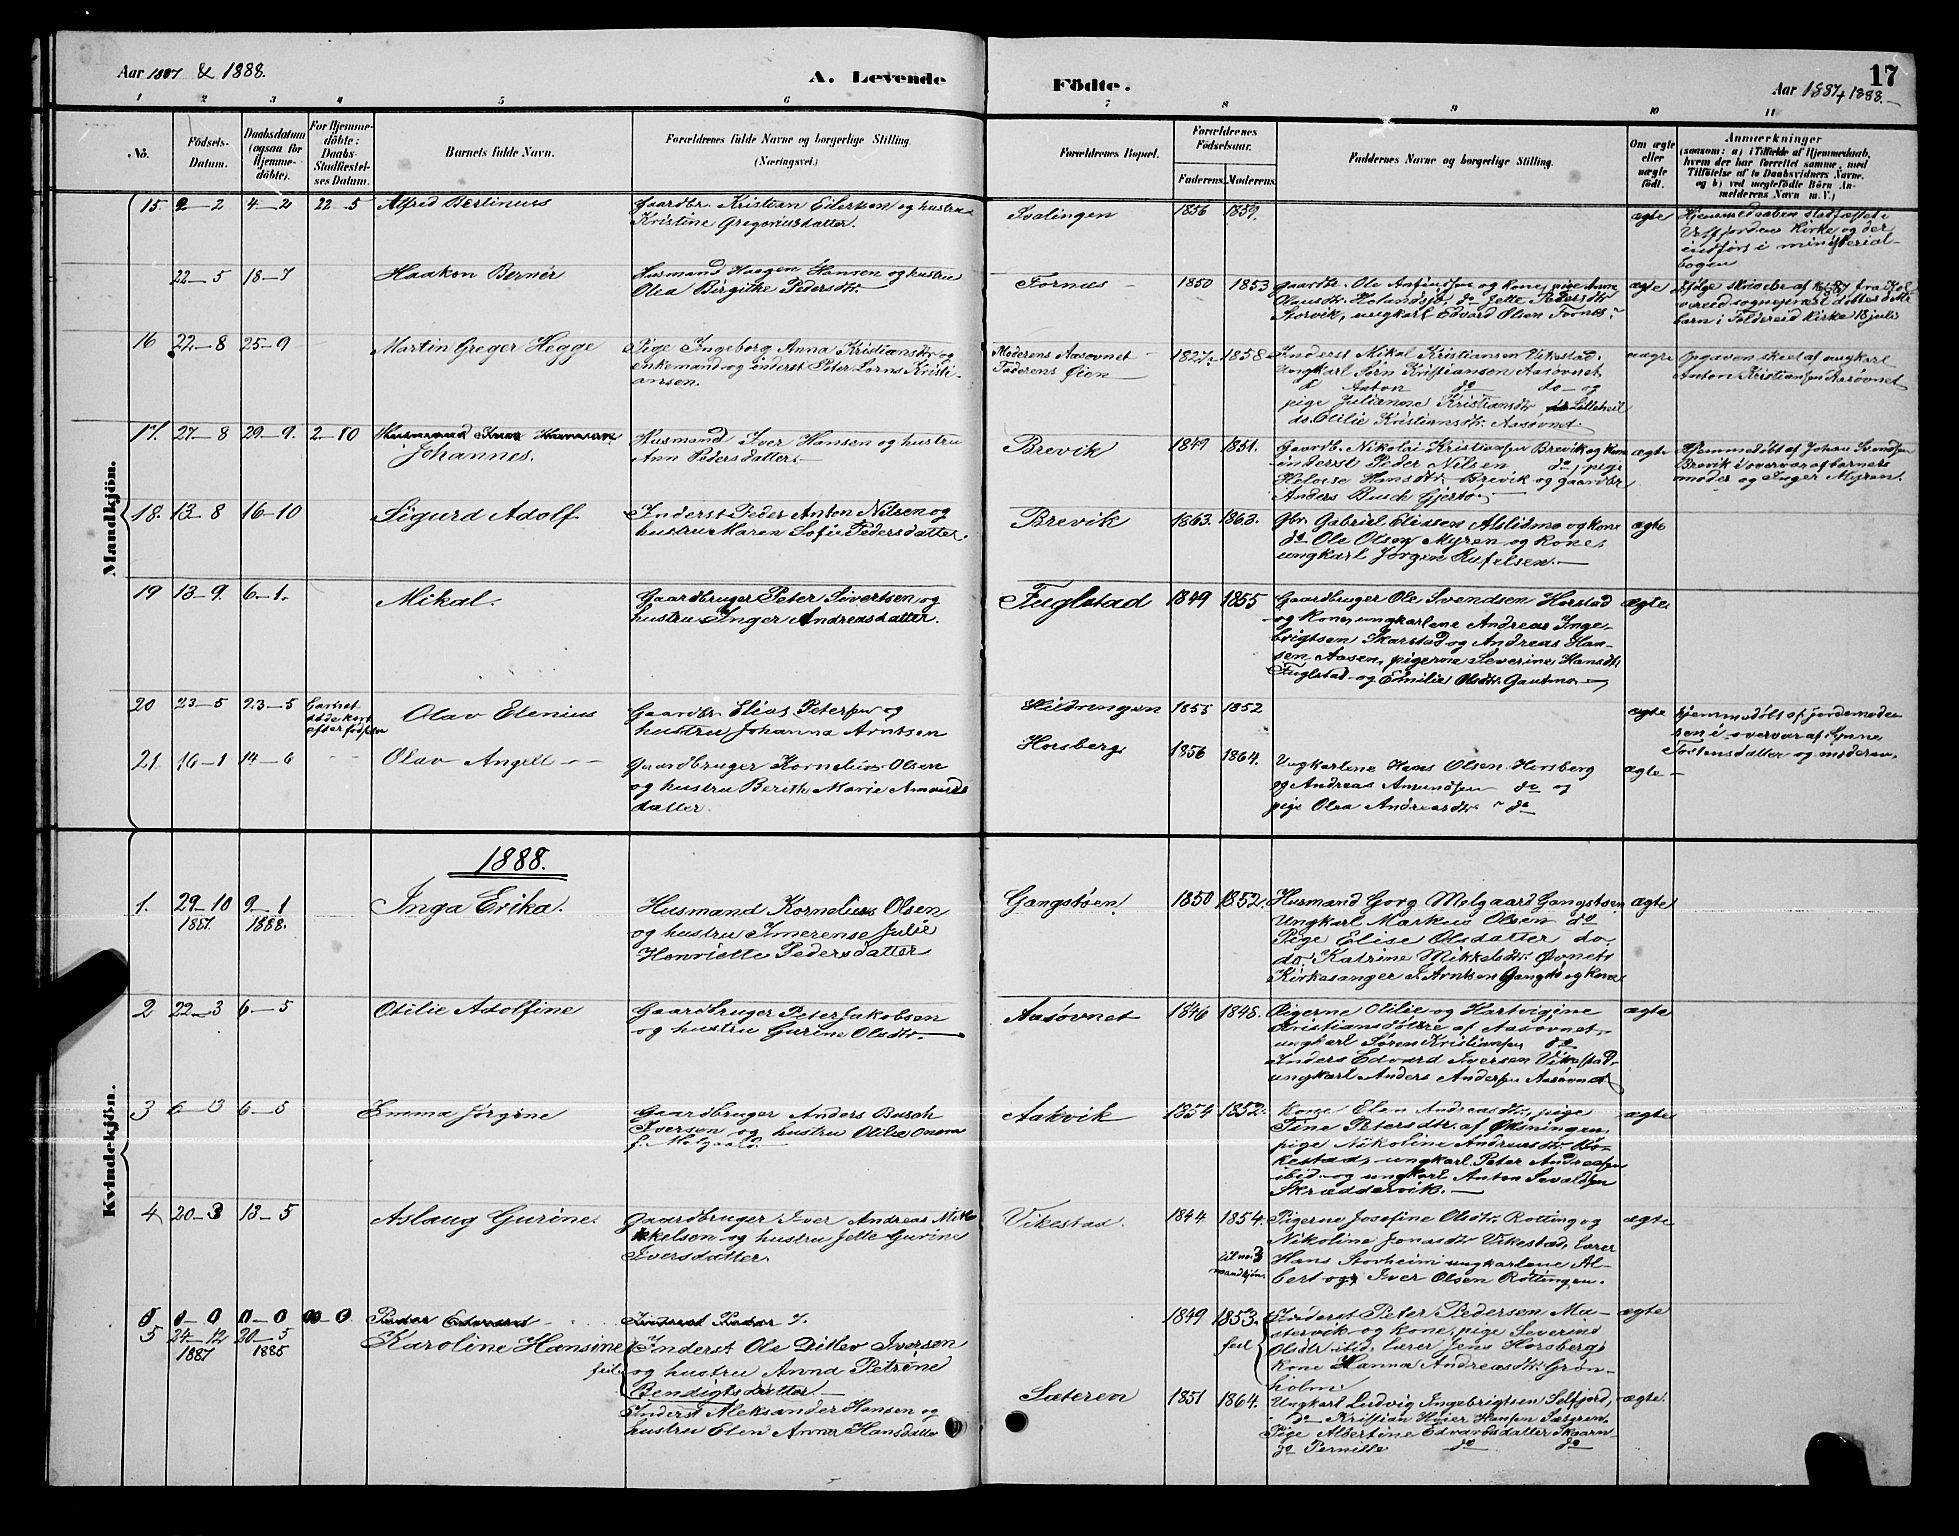 Aar 1887 & 1888.
A. Levende
Födte.
17
Aar 1887 + 1888.
1 2 3 4 5 6 7 8 9 10 11
No.
Födsels-Datum.
Daabsdatum (ogsaa for Hjemme-döbte).
For Hjemme-döbte: Daabs-Stadfæstel-ses Datum.
Barnets fulde Navn.
Forældrenes fulde Navne og borgerlige Stilling.
(Næringsvei.)
Forældrenes Bopæl.
Forældrenes Födselsaar.
Faderens. Moderens.
Faddernes Navne og borgerlige Stilling.
Om ægte eller uægte födt.
Anmærkninger
(saasom: a) i Tilfælde af Hjemmedaab,
hvem der har forrettet samme, med
Tilföielse af to Daabsvidners Navne,
og b) ved uægtefödte Börn An-
melderens Navn m. V.)
Mandkjön.
15. 2-2 4-2 22-5 Alfred Bertinus
Gaardbr. Kristian Eilertsen og hustru
Kristine Gregoriusdatter.
1856 1859.
ægte
Hjemmedaaben stadfæstet i
kirke og der
indført i ministerial-
bogen
22-5 18-7 Haakon Bernér
Husmand Haagen Hansen og hustru
Olea Birgithe Pedersdtr.
Fornæs
1850 1853
Storvik, ungkarl Edvard Olsen Fornes.
ægte
barn i Foldereid kirke 18 juli
16 22-8 25-9 Martin Greger Hegge
Pige Ingeborg Anna Kristiansdtr og
enkemand og inderst Peter Lorns Kristi-
ansen.
Moderens Aasovnet
Faderens Øien
1827. 1858
Inderst Mikal Kristiansen Vikestad.
Ungkarl Sørn Kristiansen Aasovnet
do Anton do do og
pige Julianne Kristiansdtr
do Otilie Kristiansdtr Aasovnet
uægte
Opgaven skeet af ungkarl
Anton Kristiansen Aasovnet
17. 27-8 29-9. 2-10
Johannes.
Husmand Iver Hansen og hustru
Ann Pedersdatter.
Brevik
1849 1851.
Gaardb. Nikolai Kristiansen Brevik og kone
inderst Peder Nilsen do, pige
Hansdtr Brevik og gaardbr
Anders Busch Gjertø
ægte
Hjemmedøbt af Johan Svendsen
Brevik i overvær af barnets
moder og Inger Myran.
18. 13-8 16-10 Sigurd Adolf
Inderst Peder Anton Nilsen og
hustru Maren Sofie Pedersdatter.
Brevik
1863. 1863.
Gbr. Gabriel Eliasen Alslidmo og kone
do Ole Olsen Myren og kone,
ungkarl Jørgen Rafelsen.
ægte
19 13-9. 6-1. Mikal.
Gaardbruger Peter Sivertsen og
hustru Inger Andreasdatter.
Fuglstad
1849 1855
Gaardbruger Ole Svendsen Horstad
og kone, ungkarlene Andreas Inge-
brigtsen Skarstad og Andreas Han-
sen Aasen, pigerne Severine Hansdtr.
Fuglstad og Emilie Olsdtr. Gautmo
ægte
20 23-5 23-5 barnet døde kort efter fødselen
Olav Elenius
Gaardbr. Elias Petersen og
hustru Johanna Arntsen
Hildringen
1855 1852
ægte
hjemmedøbt af jordemoder
sen i overvær af
Torstensdatter og moderen.
21. 16-1 14-6 Olav Angell
Gaardbruger Kornelius Olsen
og hustru Berith Marie Amunds
datter.
Horsberg
1856 1864.
Ungkarlene Hans Olsen Horsberg
og Andreas Amundsen do og
pige Olea Andreasdtr. do
ægte
1888.
Kvindekjön.
1. 29-10 1887. 9-1 1888. Inga Erika.
Husmand Kornelius Olsen
og hustru Imerense Julie
Henriette Pedersdatter
Gangstøen
1850 1852.
Husmand Gorg Molgaard Gangstøen
Ungkarl Markus Olsen do
Pige Elise Olsdatter do.
do. Katrine Mikkelsdtr. Øvnets
Kirkesanger I. Arntsen Gangstø og kone
ægte
2 22-3 6-5 Otilie Adolfine
Gaardbruger Peter Jakobsen
og hustru Gurine Olsdtr.
Aasovnet
1846 1848.
Pigerne Otilie og Hartvigine
Kristiansdøttre af Aasovnet,
ungkarl Søren Kristiansen do
Inders Edvard Iversen Vikestad
ungkarl Anders Andersen Aasovnet
ægte
3 6-3 6-5 Emma Jørgine
Gaardbruger Anders Busch
Iversen og hustru Otilie
f. Molgaard.
Aakvik
1854 1852.
Kone Elen Andreasdtr, pige
Tine Petersdtr. af Økningen,
pige Nikoline Andreasdtr.
ungkarl Peter Andreasen
ibid og ungkarl Anton Sivaldsen
Skræddervik.
ægte
4 20-3 13-5 Aslaug Gurine.
Gaardbruger Iver Andreas Mik
kelsen og hustru Jette Gurine
Iversdatter.
Vikestad.
1844. 1854.
til no 3 mandkjøn.
Pigerne Josefine Olsdtr. Rotting og
Nikoline Jonasdtr Vikestad, lærer
Hans Storheim ungkarlene Al-
bert og Iver Olsen Röttingen.
ægte
Peder Edvard
Inderst Peder I.
5 24-12 1887 20-5 1888 Karoline Hansine
feil
Inderst Ole Ditlev Iversen
og hustru Anna Petrine
Bendigtsdatter
1849 1853.
feil
Inderst Peter Pedersen Mu-
stervik og kone, pige Severine
Olsdtr ibid, lærer Jens Horsberg
kone Hanna Andreasdtr. Grøn-
holm
ægte
Inderst Aleksander Hansen og
hustru Elen Anna Hansdatter
Sæteren
1851 1864.
Ungkarl Ludvig Ingebrigtsen Solfjord,
do Kristian Høier Hansen Sæteren
Pige Albertine Edvardsdatter Skaarn
do Pernille do do
ægte.